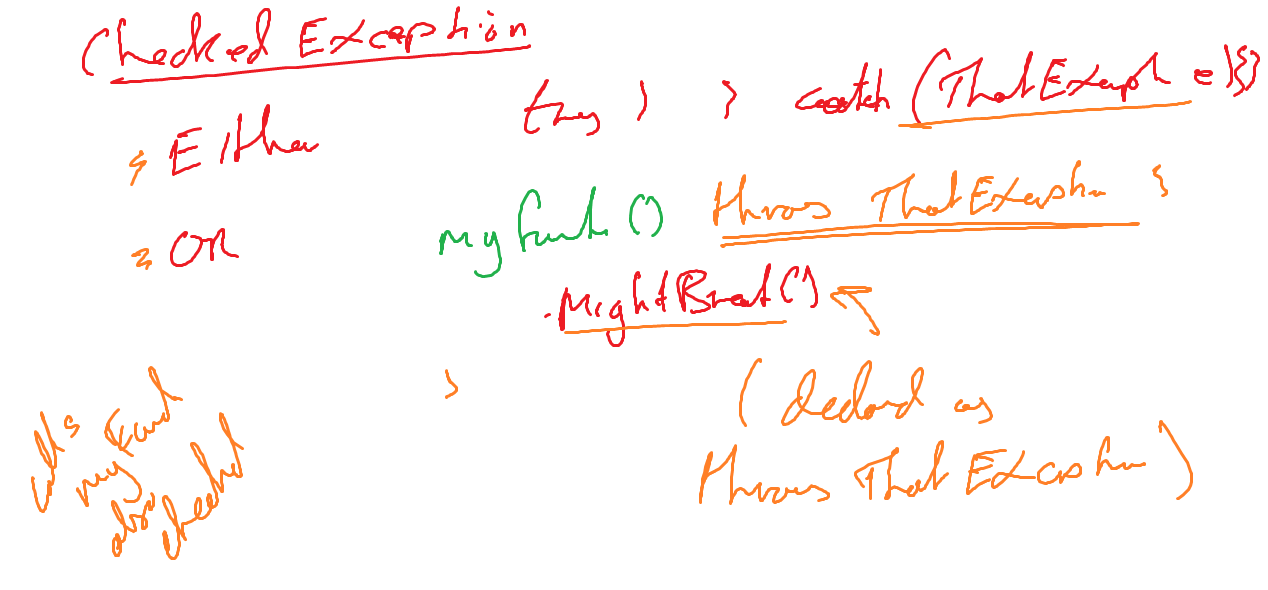 Checked Exception
try } } catch (ThatExceph e){}
Either
myfunk () throws ThatExcepha {
OR
.MightBreak()
}
(declard as
throws ThatExcepha)
calls
myFunk
also
checked